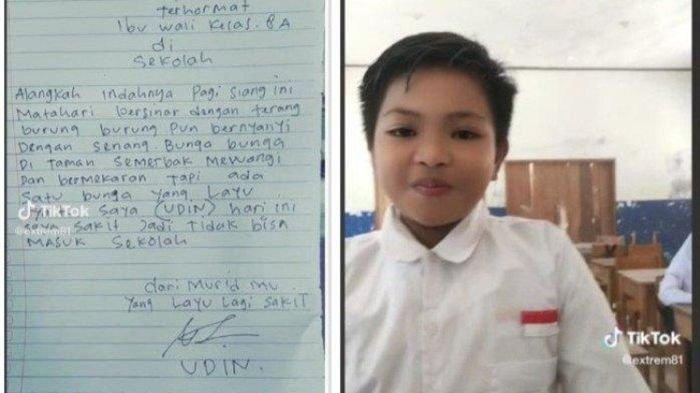 Terhormat
Ibu Wali Kelas. 8A
di
Sekolah
Alangkah Indahnya Pagi siang ini
Matahari bersinar dengan terang
burung burung Pun bernyanyi
Dengan senang Bunga bunga
Di Taman Semerbak Mewangi
Dan bermekaran Tapi ada
Satu bunga yang Layu
Saya (UDIN) hari ini
sakit Jadi Tidak bisa
MASUK Sekolah
dari Murid mu
yang Layu lagi sakit
UDIN.
TikTok
@extrem81
TikTok
@extrem81